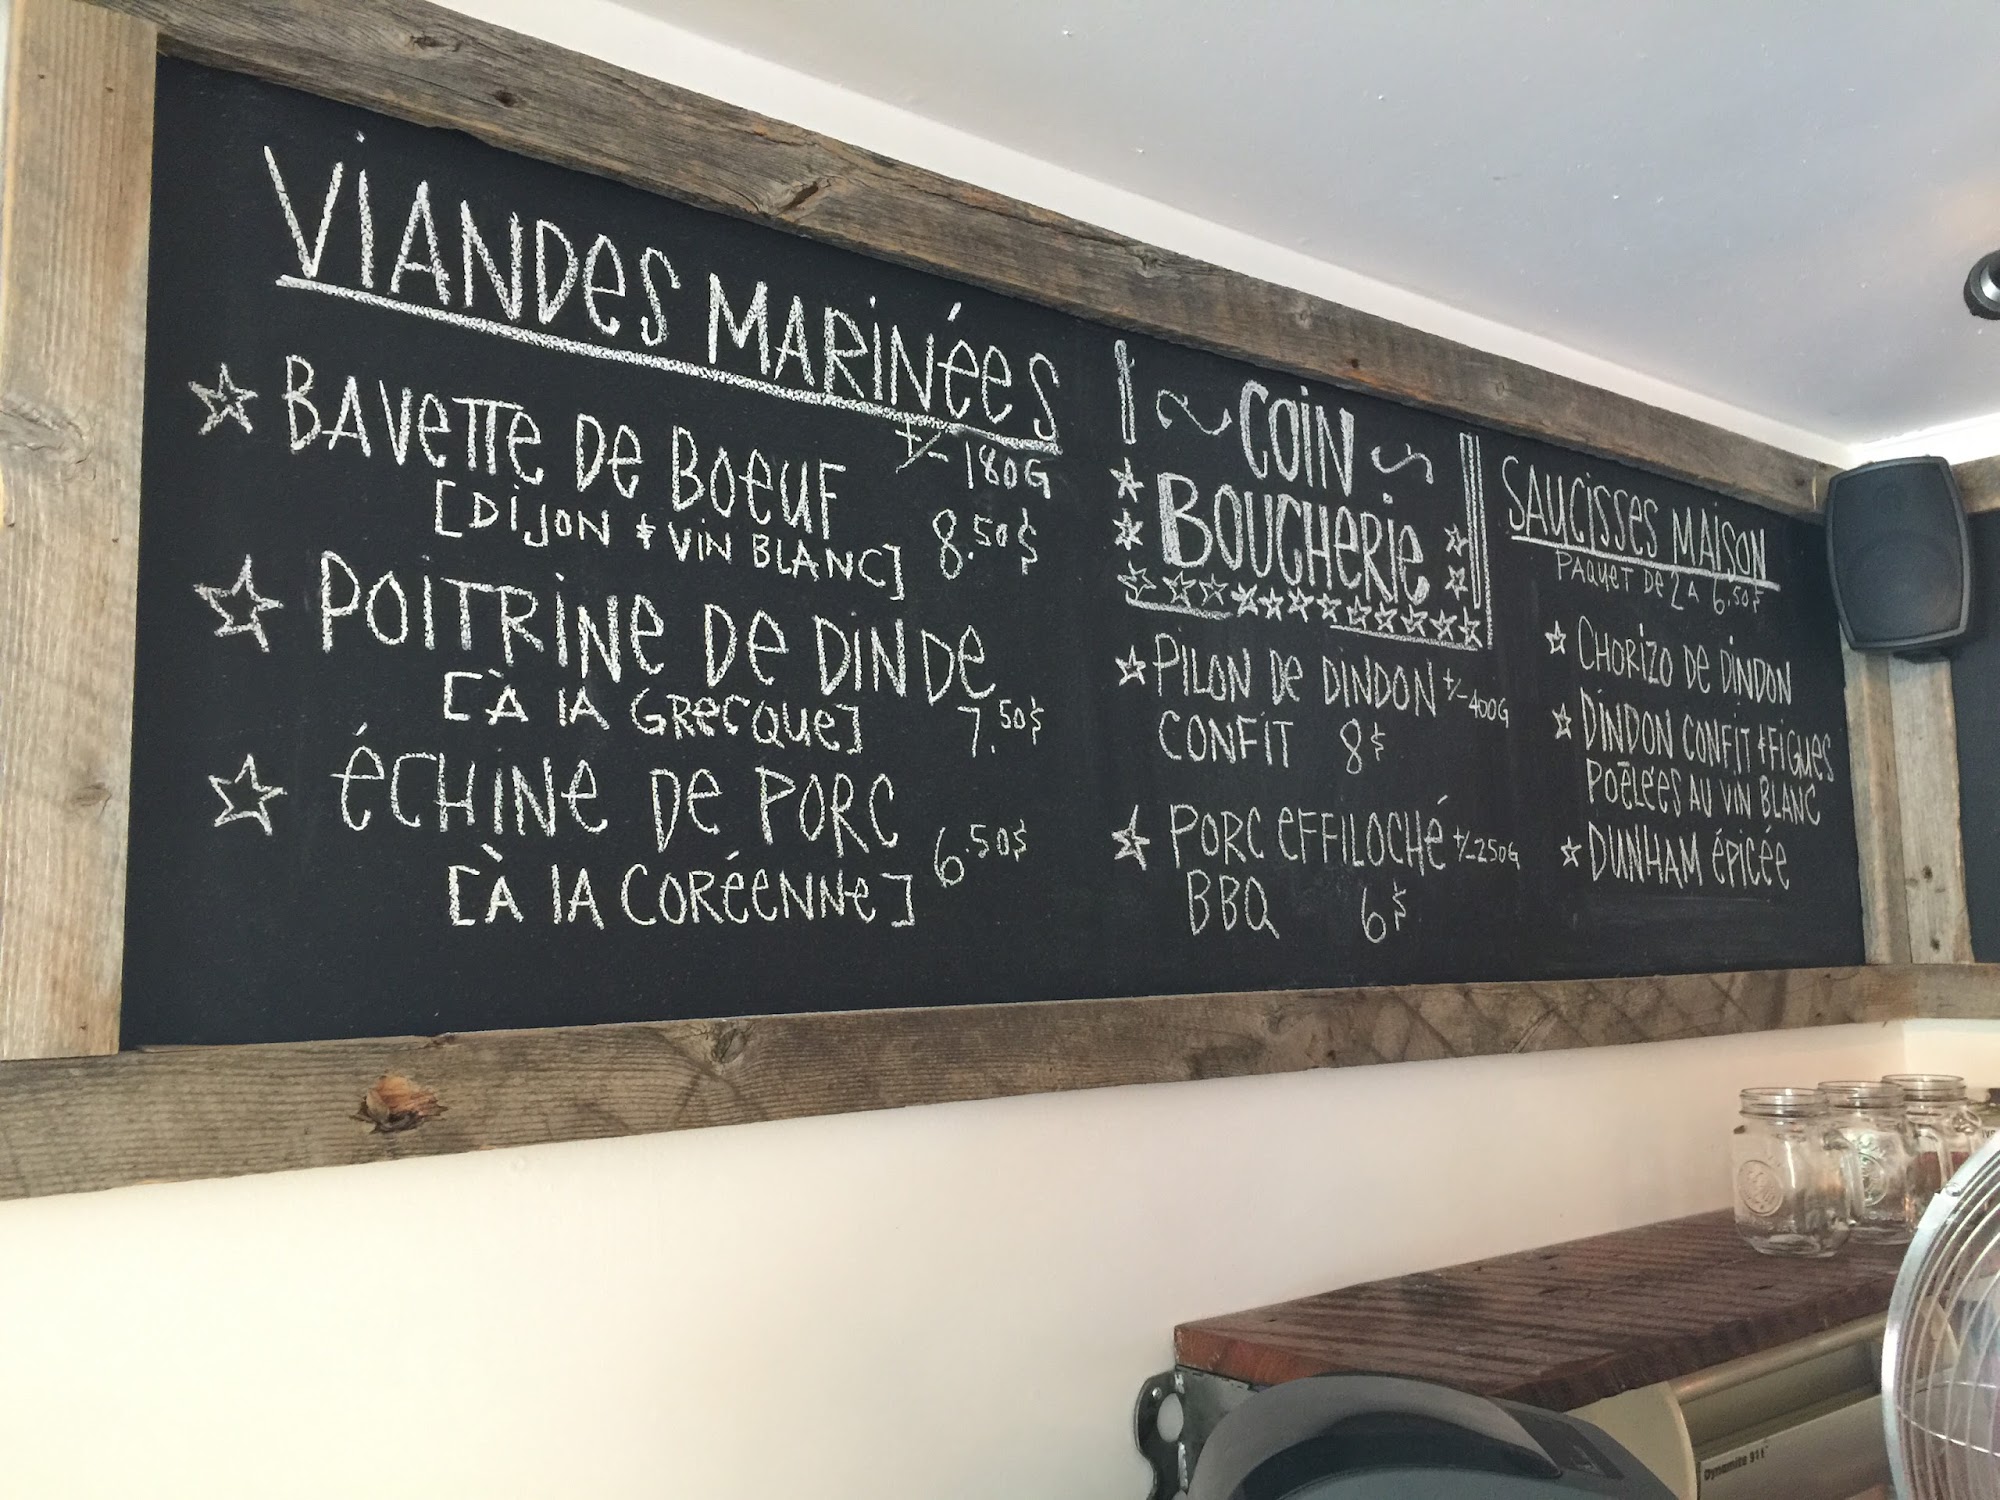 ViANDes MARiNées
☆ BAVeTTe De BOeUF +/- 180G
[DiJON & ViN BLANC] 8.50$
☆ POiTRiNe De DiNDe
[À lA GRecQue] 7.50$
☆ éCHiNe De PORC
[À lA CORéeNNe] 6.50$
~ COiN ~
BOUCHeRie
☆ PiLON De DiNDON +/- 400G
CONFiT 8$
☆ PORC eFFiLOCHé +/- 250G
BBQ 6$
SAUCisses MAisON
PAQUeT De 2 À 6.50$
☆ CHORiZO De DiNDON
☆ DiNDON CONFiT & FiGUes
POêLées AU ViN BLANC
☆ DUNHAM éPiCée